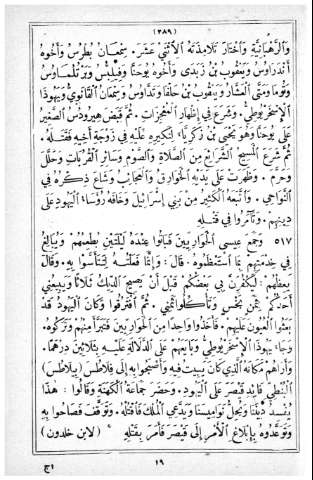 (٢٨٩)
وَٱلرَّهْبَانِيَّةِ وَٱخْتَارَ تَلَامِذَتَهُ ٱلْٱثْنَيْ عَشَرَ. سِمْعَانُ بُطْرُسُ وَأَخُوهُ
أَنْدَرَاوُسُ وَيَعْقُوبُ بْنُ زَبَدَى وَأَخُوهُ يُوحَنَّا وَفِيلِبُّسُ وَبَرْتُلْمَاوُسُ
وَتُومَا وَمَتَّى ٱلْعَشَّارُ وَيَعْقُوبُ بْنُ حَلْفَا وَتَدَّاوُسُ وَسِمْعَانُ ٱلْقَانَوِيُّ وَيَهُوذَا
ٱلْإِسْخَرْيُوطِيُّ. وَشَرَعَ فِي إِظْهَارِ ٱلْمُعْجِزَاتِ. ثُمَّ قَبَضَ هِيرُودُسُ ٱلصَّغِيرُ
عَلَى يُوحَنَّا وَهُوَ يَحْيَى بْنُ زَكَرِيَّا لِنَكِيرِهِ عَلَيْهِ فِي زَوْجَةِ أَخِيهِ فَقَتَلَهُ.
ثُمَّ شَرَعَ ٱلْمَسِيحُ ٱلشَّرَائِعَ مِنَ ٱلصَّلَاةِ وَٱلصَّوْمِ وَسَائِرِ ٱلْقُرُبَاتِ وَحَلَّلَ
وَحَرَّمَ. وَظَهَرَتْ عَلَى يَدَيْهِ ٱلْخَوَارِقُ وَٱلْعَجَائِبُ وَشَاعَ ذِكْرُهُ فِي
ٱلنَّوَاحِي. وَٱتَّبَعَهُ ٱلْكَثِيرُ مِنْ بَنِي إِسْرَائِيلَ وَخَافَهُ رُؤَسَاءُ ٱلْيَهُودِ عَلَى
دِينِهِمْ. وَتَآمَرُوا فِي قَتْلِهِ
٥١٧ وَجَمَعَ عِيسَى ٱلْحَوَارِيِّينَ فَبَاتُوا عِنْدَهُ لَيْلَتَيْنِ يُطْعِمُهُمْ وَيُبَالِغُ
فِي خِدْمَتِهِمْ بِمَا ٱسْتَعْظَمُوهُ. قَالَ: وَإِنَّمَا فَعَلْتُهُ لِتَتَأَسَّوْا بِهِ. وَقَالَ
يَعِظُهُمْ: لَيَكْفُرَنَّ بِي بَعْضُكُمْ قَبْلَ أَنْ يَصِيحَ ٱلدِّيكُ ثَلَاثًا وَيَبِيعُنِي
أَحَدُكُمْ بِثَمَنٍ بَخْسٍ وَتَأْكُلُوا ثَمَنِي. ثُمَّ ٱفْتَرَقُوا وَكَانَ ٱلْيَهُودُ قَدْ
بَعَثُوا ٱلْعُيُونَ عَلَيْهِمْ. فَأَخَذُوا وَاحِدًا مِنَ ٱلْحَوَارِيِّينَ فَتَبَرَّأَ مِنْهُمْ وَتَرَكُوهُ.
وَجَاءَ يَهُوذَا ٱلْإِسْخَرْيُوطِيُّ وَبَايَعَهُمْ عَلَى ٱلدَّلَالَةِ عَلَيْهِ بِثَلَاثِينَ دِرْهَمًا.
وَأَرَاهُمْ مَكَانَهُ ٱلَّذِي كَانَ يَبِيتُ فِيهِ وَأَصْبَحُوا بِهِ إِلَى فِلَاطُسَ (بِيلَاطُسَ)
ٱلنَّبَطِيِّ قَائِدِ قَيْصَرَ عَلَى ٱلْيَهُودِ. وَحَضَرَ جَمَاعَةُ ٱلْكَهَنَةِ وَقَالُوا: هٰذَا
يُفْسِدُ دِينَنَا وَيُحِلُّ نَوَامِيسَنَا وَيَدَّعِي ٱلْمُلْكَ فَٱقْتُلْهُ. وَتَوَقَّفَ فَصَاحُوا بِهِ
وَتَوَعَّدُوهُ بِإِبْلَاغِ ٱلْأَمْرِ إِلَى قَيْصَرَ فَأَمَرَ بِقَتْلِهِ (لابن خلدون)
١٩
ج١